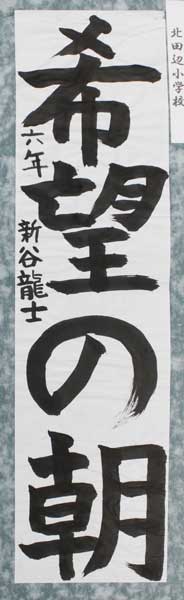 北田辺小学校
希望の朝
六年 新谷龍士